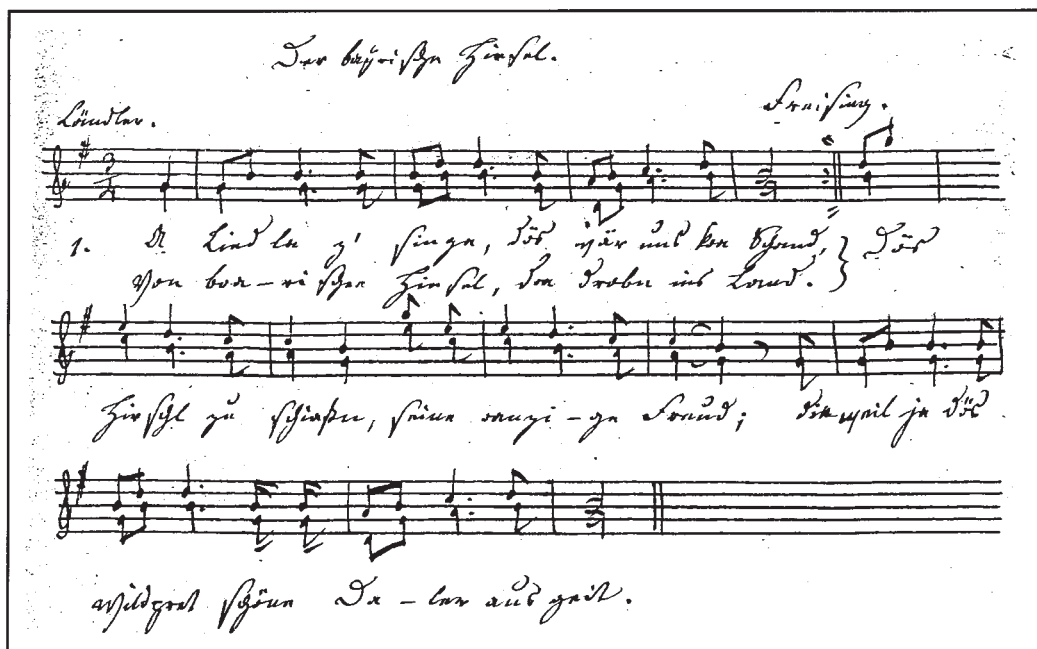 Der bayrische Hiesel.
Ländler.
Freising.
1. A Liedla z' singa, dös wär uns koa Schand, } Dös
Von boa-rischen Hiesel, der drobn ins Land. }
Hirschl zu schiaßn, seine oanzi-ge Freud; dieweil ja dös
Wildpret schöne Da-ler aus geit.